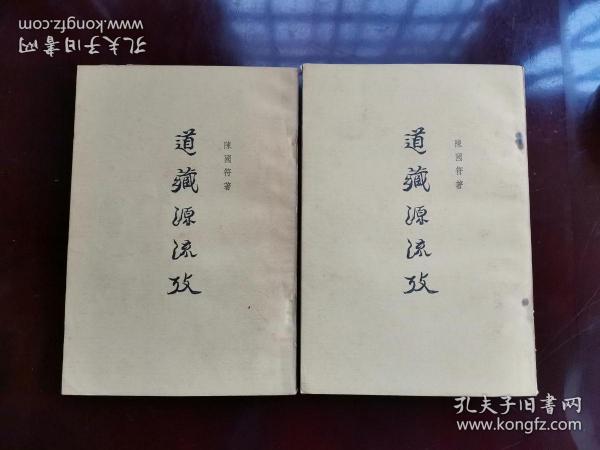 孔夫子旧书网
www.kongfz.com
道藏源流攷
陳國符著
道藏源流攷
陳國符著
孔夫子旧书网
www.kongfz.com